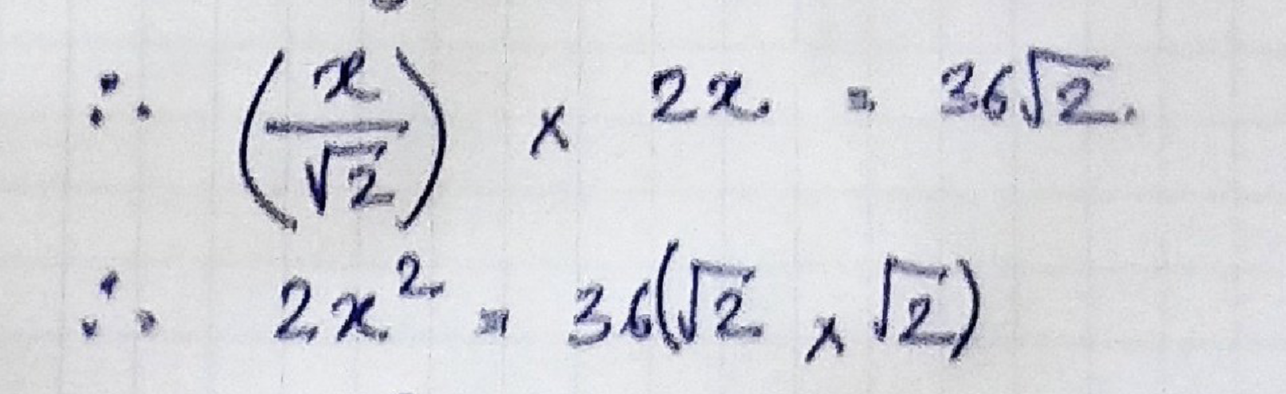 ∴ (x/√2) × 2x = 36√2.
∴ 2x² = 36(√2 × √2)